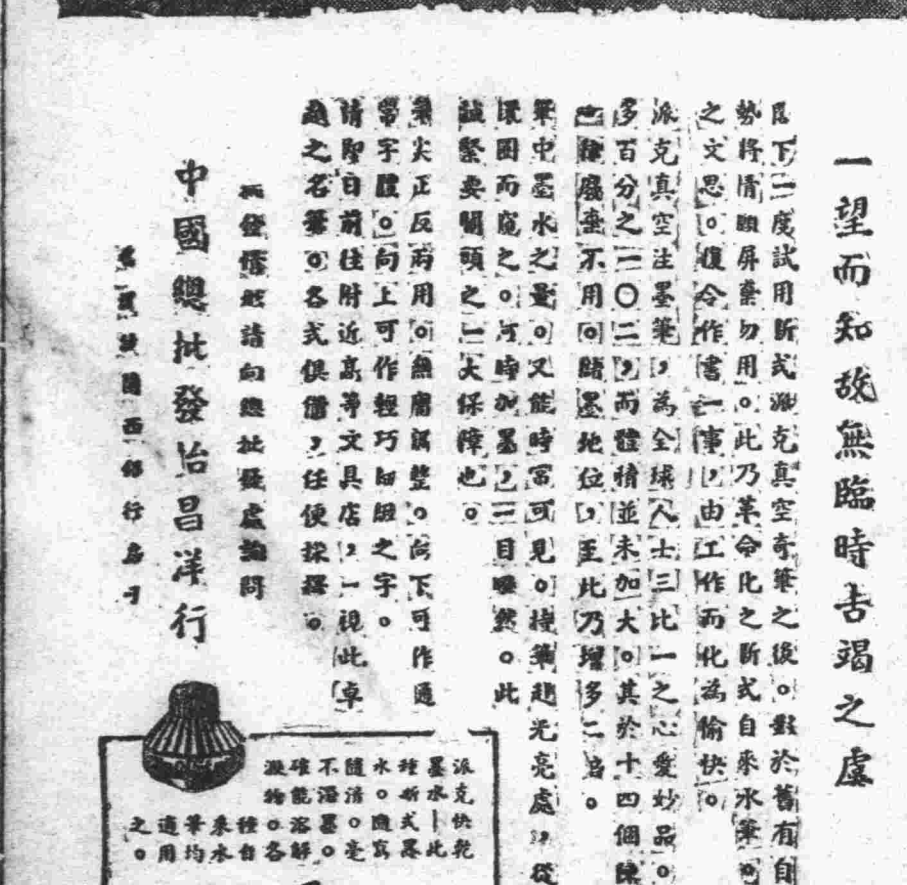 一望而知故無臨時告竭之虞
閣下一度試用新式派克真空奇筆之後。對於舊有自
勢將情願屏棄勿用。此乃革命化之新式自來水筆。可
之文思。復令作書一事，由工作而化為愉快。
派克真空注墨筆，為全球人士三比一之心愛妙品。
多百分之一〇二，而體積並未加大。其於十四個陳
一律廢棄不用。儲墨地位，至此乃增多二倍。
筆中墨水之量。又能時常可見。持筆趨光亮處，從
環圈而窺之。何時加墨，一目瞭然。此
誠緊要關頭之一大保障也。
筆尖正反兩用。無需調整。向下可作通
常字體。向上可作輕巧細緻之字。
請即日前往附近高等文具店，一視此卓
越之名筆。各式俱備，任便採擇。
批發價格請向總批發處詢問
中國總批發怡昌洋行
西
行
派克快乾
墨水—此
種新式墨
水。隨寫
隨清。毫
不溼墨。
確能溶解
澱物。各
種自
來水
筆均
適用
之。